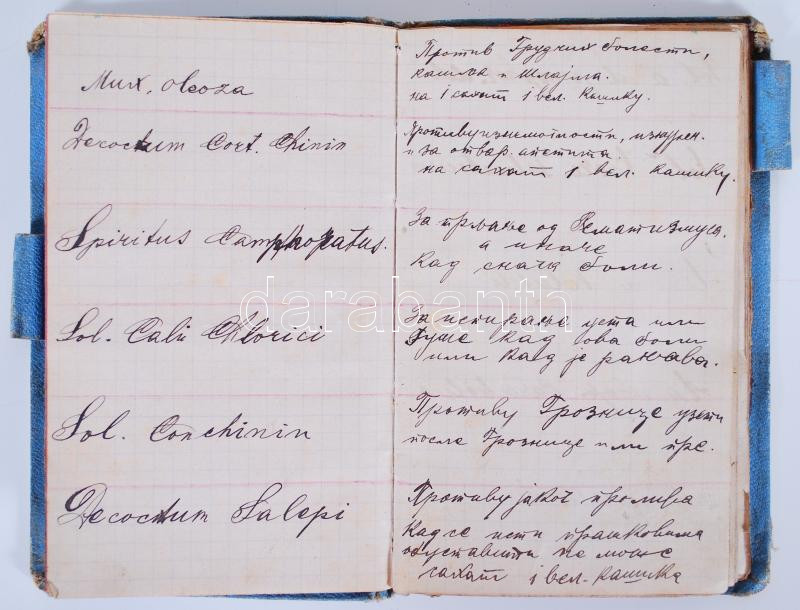 Mixt. oleoza
Против Грудних болести,
кашља и шлајма.
на 1 сахат 1 вел. кашику.
Decoctum Cort. Chinin
противу изнемоглости, изнурен.
и за отвар. апетита.
на сахат 1 вел. кашику.
Spiritus Camphoratus.
За трљање од Рематизмуса.
а иначе
кад снага боли.
Sol. Calii Chlorici
За испирање уста или
Гуше кад ова боли
или кад је рањава.
Sol. Conchinin
Противу Грознице узети
после Грознице или пре.
Decoctum Salepi
Противу јаког пролива
Кад се исти прашковима
зауставити не може
сахат 1 вел. кашика
darabanth